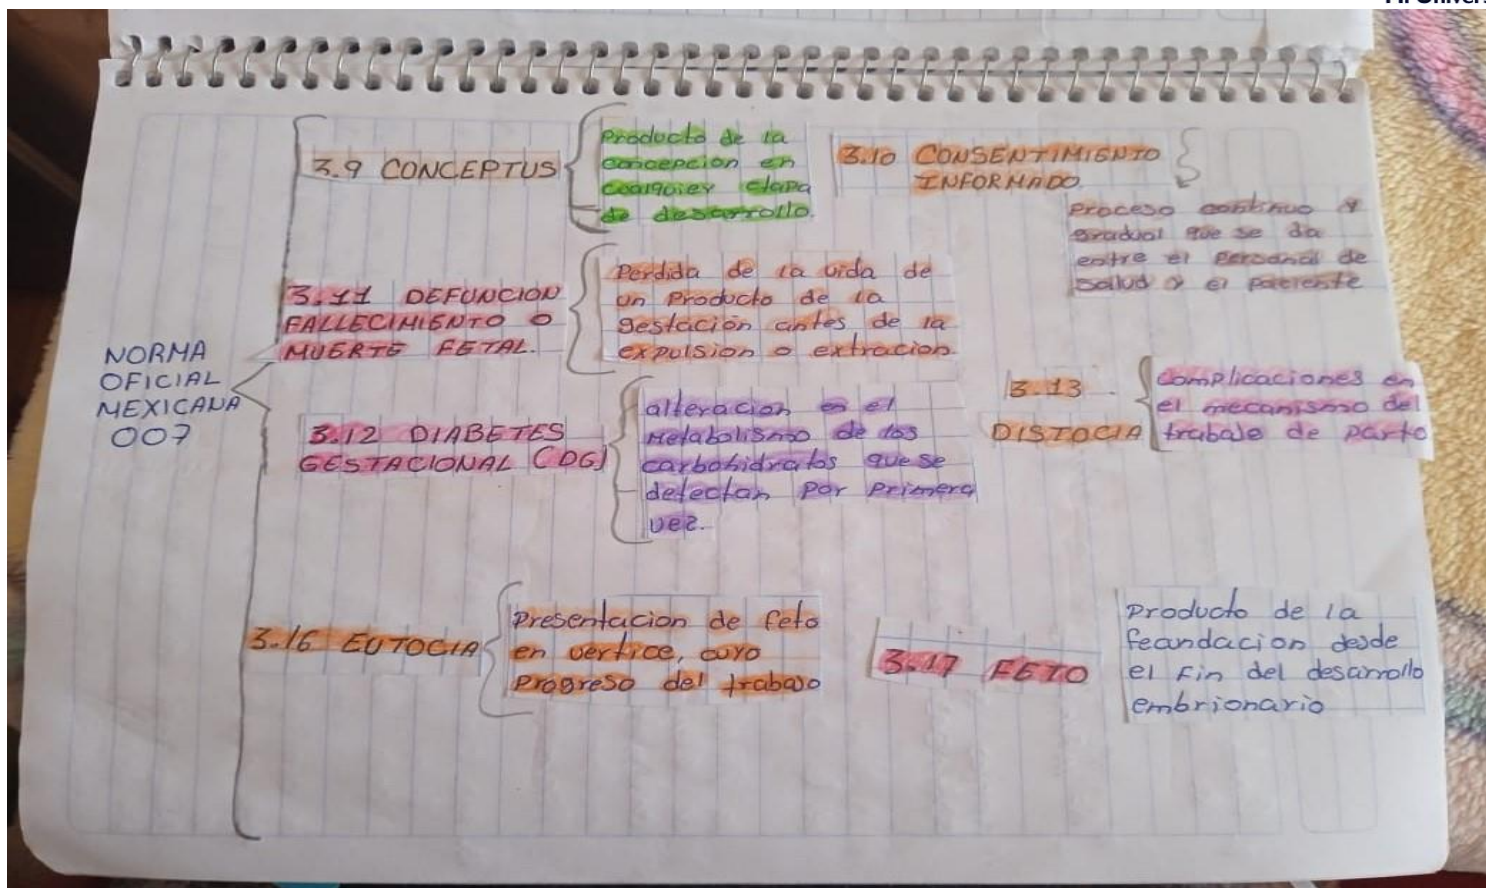 NORMA
OFICIAL
MEXICANA
007
3.9 CONCEPTUS
Producto de la
concepcion en
cualquier etapa
de desarrollo.
3.10 CONSENTIMIENTO
INFORMADO.
Proceso continuo y
gradual que se da
entre el personal de
salud y el paciente
3.11 DEFUNCION
FALLECIMIENTO O
MUERTE FETAL.
Perdida de la vida de
un Producto de la
gestación antes de la
expulsion o extracion
3.12 DIABETES
GESTACIONAL (DG)
alteracion en el
Metabolismo de los
carbohidratos que se
detectan por primera
vez.
3.13
DISTOCIA
Complicaciones en
el mecanismo del
trabajo de parto
3.16 EUTOCIA
Presentacion de feto
en vertice, cuyo
Progreso del trabajo
3.17 FETO
Producto de la
fecundacion desde
el Fin del desarrollo
embrionario